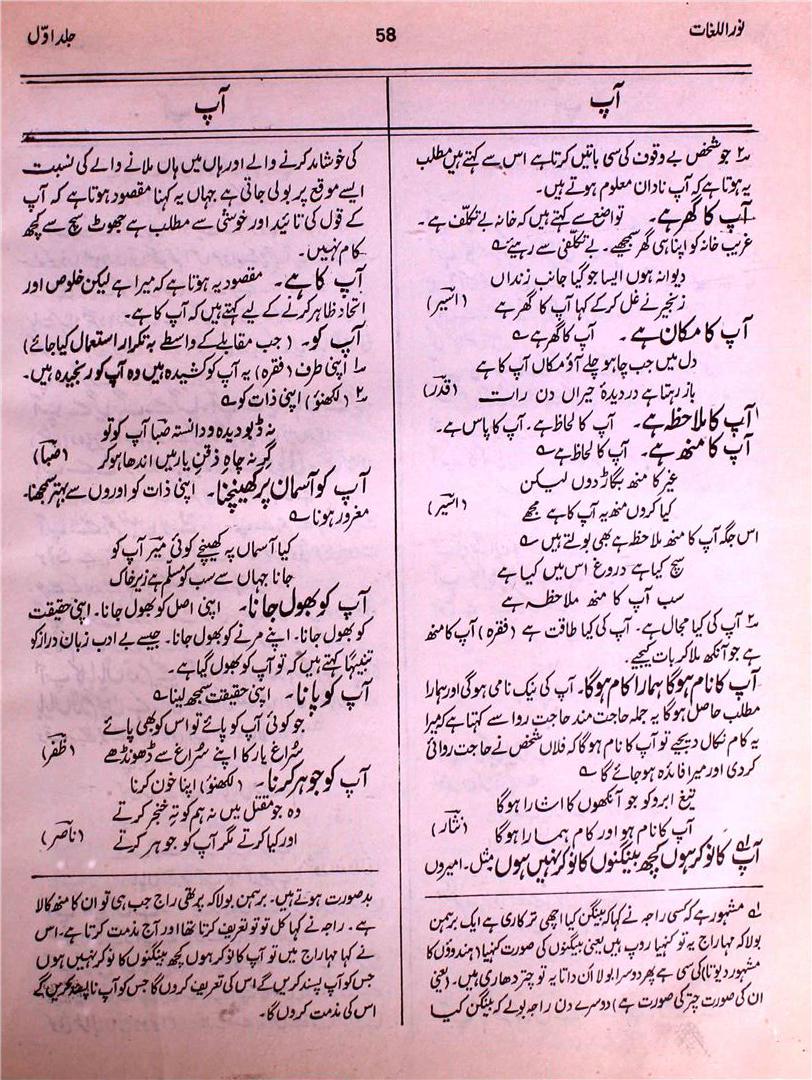 نور اللغات
58
جلد اوّل
آپ
۲؎ جو شخص بے وقوف کی سی باتیں کرتا ہے اس سے کہتے ہیں مطلب
یہ ہوتا ہے کہ آپ نادان معلوم ہوتے ہیں۔
آپ کا گھر ہے۔ تواضع سے کہتے ہیں کہ خانہ بے تکلّف ہے۔
غریب خانہ کو اپنا ہی گھر سمجھیے۔ بے تکلّفی سے رہیے ؎
دیوانہ ہوں ایسا جو گیا جانب زنداں
زنجیر نے غل کر کے کہا آپ کا گھر ہے (اسیر)
آپ کا مکان ہے۔ آپ کا گھر ہے ؎
دل میں جب چاہو چلے آؤ مکاں آپ کا ہے
باز رہتا ہے در دیدۂ حیراں دن رات (قدر)
آپ کا ملاحظہ ہے۔ آپ کا لحاظ ہے۔ آپ کا پاس ہے۔
آپ کا منھ ہے۔ آپ کا لحاظ ہے ؎
غیر کا منھ بگاڑ دوں لیکن
کیا کروں منھ یہ آپ کا ہے مجھے (اسیر)
اس جگہ آپ کا منھ ملاحظہ ہے بھی بولتے ہیں ؎
سچ کیا ہے دروغ اس میں کیا ہے
سب آپ کا منھ ملاحظہ ہے
۲؎ آپ کی کیا مجال ہے۔ آپ کی کیا طاقت ہے (فقرہ) آپ کا منھ
ہے جو آنکھ ملا کر بات کیجیے۔
آپ کا نام ہوگا ہمارا کام ہوگا۔ آپ کی نیک نامی ہوگی اور ہمارا
مطلب حاصل ہوگا یہ جملہ حاجت مند حاجت روا سے کہتا ہے کہ میرا
یہ کام نکال دیجیے تو آپ کا نام ہوگا کہ فلاں شخص نے حاجت روائی
کردی اور میرا فائدہ ہوجائے گا ؎
تیغ ابرو کو جو آنکھوں کا اشارا ہوگا
آپ کا نام ہو اور کام ہمارا ہوگا (نثار)
آپ کا نوکر ہوں کچھ بینگنوں کا نوکر نہیں ہوں۱؎ مثل۔ امیروں
۱؎ مشہور ہے کسی راجہ نے کہا کہ بینگن کیا اچھی ترکاری ہے ایک برہمن
بولا کہ مہاراج یہ تو کنہیا روپ ہیں یعنی بینگنوں کی صورت کنہیا (ہندوؤں کا
مشہور دیوتا) کی سی ہے پھر دوسرا بولا ان داتا یہ تو چتر دھاری ہیں۔ (یعنی
ان کی صورت چتر کی صورت ہے) دوسرے دن راجہ بولے کہ بینگن کیا
آپ
کی خوشامد کرنے والے اور ہاں میں ہاں ملانے والے کی نسبت
ایسے موقع پر بولی جاتی ہے جہاں یہ کہنا مقصود ہوتا ہے کہ آپ
کے قول کی تائید اور خوشی سے مطلب ہے جھوٹ سچ سے کچھ
کام نہیں۔
آپ کا ہے۔ مقصود یہ ہوتا ہے کہ میرا ہے لیکن خلوص اور
اتحاد ظاہر کرنے کے لیے کہتے ہیں کہ آپ کا ہے۔
آپ کو۔ (جب مقابلے کے واسطے بہ تکرار استعمال کیا جائے)
۱؎ اپنی طرف (فقرہ) یہ آپ کو کشیدہ ہیں وہ آپ کو رنجیدہ ہیں۔
۲؎ (لکھنؤ) اپنی ذات کو ؎
نہ ڈبو دیدہ و دانستہ صبا آپ کو تو
گر نہ چاہِ ذقنِ یار میں اندھا ہوکر (صبا)
آپ کو آسمان پر کھینچنا۔ اپنی ذات کو اوروں سے بہتر سمجھنا۔
مغرور ہونا ؎
کیا آسماں پہ کھینچے کوئی میر آپ کو
جانا جہاں سے سب کو مسلّم ہے زیر خاک
آپ کو بھول جانا۔ اپنی اصل کو بھول جانا۔ اپنی حقیقت
کو بھول جانا۔ اپنے مرنے کو بھول جانا۔ جیسے بے ادب زبان دراز کو
تنبیہاً کہتے ہیں کہ تو آپ کو بھول گیا ہے۔
آپ کو پانا۔ اپنی حقیقت سمجھ لینا ؎
جو کوئی آپ کو پائے تو اس کو بھی پائے
سُراغ یار کا اپنے سُراغ سے ڈھونڈھے (ظفر)
آپ کو جوہر کرنا۔ (لکھنؤ) اپنا خون کرنا
وہ جو مقتل میں نہ ہم کو تہِ خنجر کرتے
اور کیا کرتے مگر آپ کو جوہر کرتے (ناصر)
بدصورت ہوتے ہیں۔ برہمن بولا کہ پرتھی راج جب ہی تو ان کا منھ کالا
ہے۔ راجہ نے کہا کل تو تو تعریف کرتا تھا اور آج مذمت کرتا ہے۔ اس
نے کہا مہاراج میں تو آپ کا نوکر ہوں کچھ بینگنوں کا نوکر نہیں ہوں
جس کو آپ پسند کریں گے اس کی تعریف کروں گا جس کو آپ ناپسند کریں گے
اس کی مذمت کروں گا۔